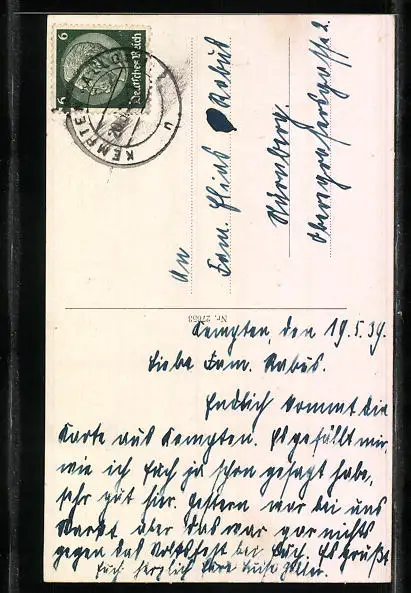 6
6
Deutsches Reich
KEMPTEN
An
Fam. Elias Rabus
Nürnberg.
Obere
2.
Nr. 27653
Kempten, den 19.5.39.
Liebe Fam. Rabus.
Endlich kommt die
Karte aus Kempten. Es gefällt mir,
wie ich Euch ja schon gesagt habe,
sehr gut hier. Gestern war bei uns
Markt aber das war gar nichts
gegen das Volksfest bei Euch. Es grüßt
Euch herzlich Eure Luise